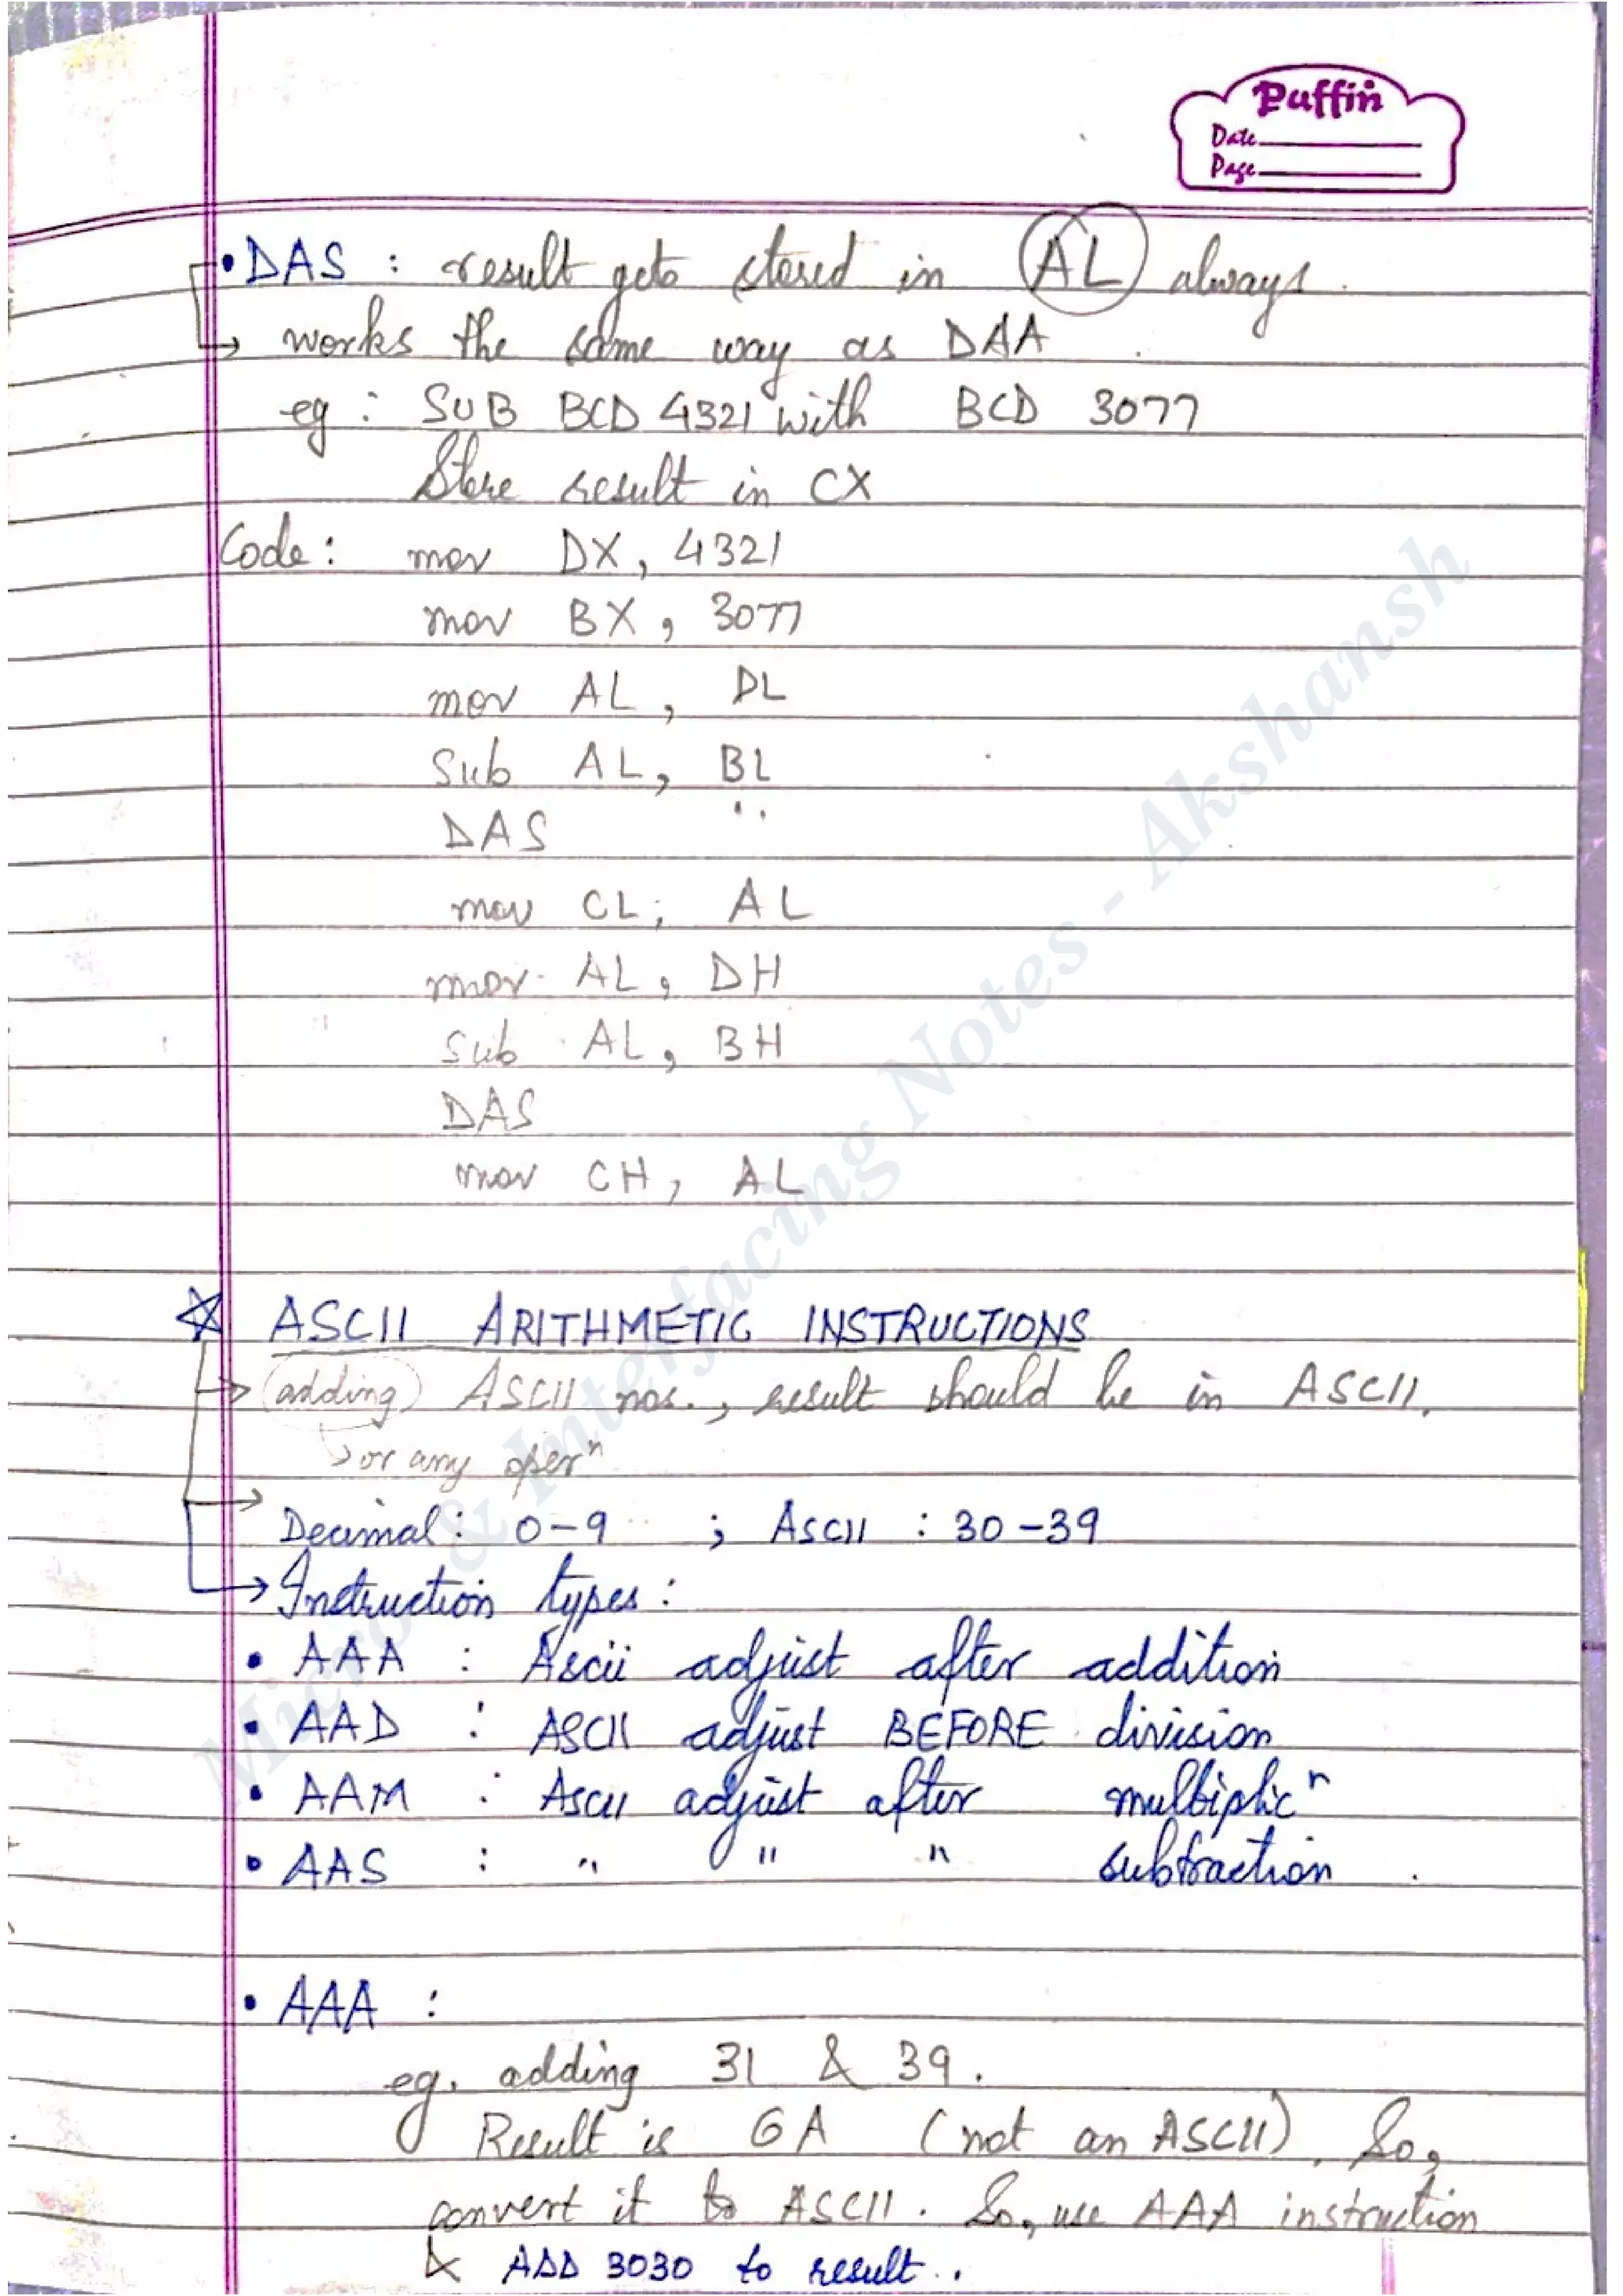 Puffin
Date
Page
• DAS : result gets stored in AL always.
→ works the same way as DAA.
eg : SUB BCD 4321 with BCD 3077
Store result in CX
Code : mov DX, 4321
mov BX, 3077
mov AL, DL
Sub AL, BL
DAS
mov CL, AL
mov AL, DH
Sub AL, BH
DAS
mov CH, AL
☆ ASCII ARITHMETIC INSTRUCTIONS
→ adding ASCII nos., result should be in ASCII.
↳ or any operⁿ
→ Decimal : 0-9 ; ASCII : 30-39
→ Instruction types :
• AAA : Ascii adjust after addition
• AAD : ASCII adjust BEFORE division
• AAM : Ascii adjust after multiplicⁿ
• AAS : " " " subtraction.
• AAA :
eg. adding 31 & 39.
Result is 6A (not an ASCII). So,
convert it to ASCII. So, use AAA instruction
& ADD 3030 to result.
Micro & Interfacing Notes - Akshansh